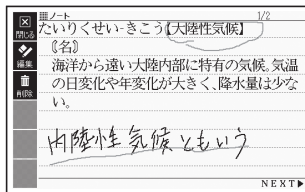 ノート 1/2
閉じる
編集
削除
たいりくせい-きこう【大陸性気候】
〘名〙
海洋から遠い大陸内部に特有の気候。気温
の日変化や年変化が大きく、降水量は少な
い。
内陸性気候ともいう
NEXT▶